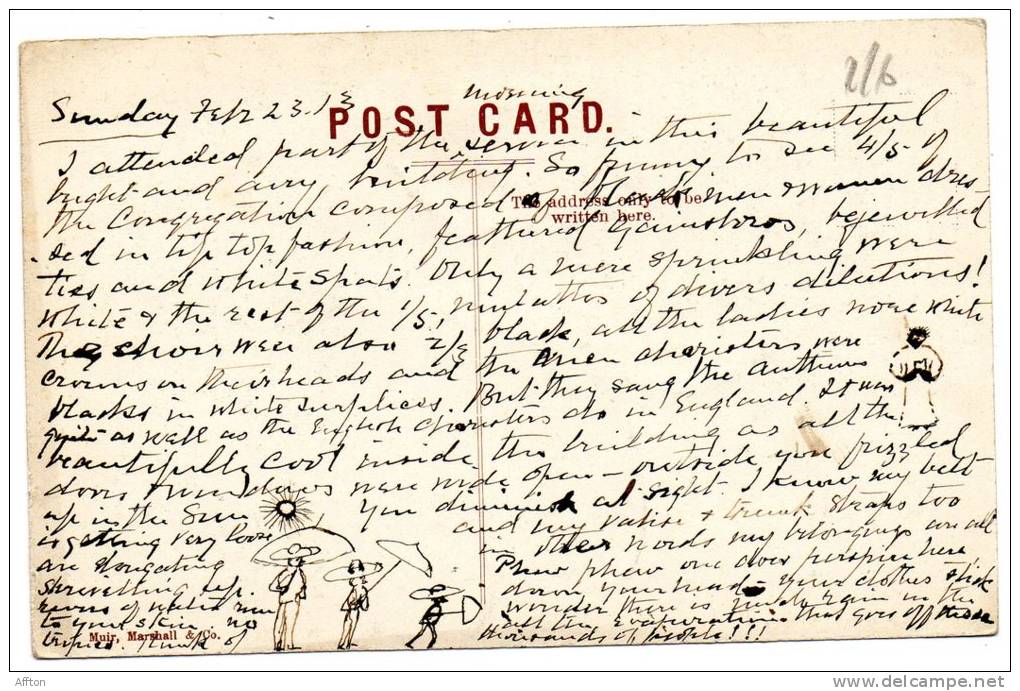 2/6
Sunday Feb 23.13
POST CARD.
morning
I attended part of the service in this beautiful
bright and airy building. So funny to see 4/5 of
the Congregation composed of blacks, men & women dres-
The address only to be
written here.
sed in tip top fashion, feathered Gainsboros, bejewelled
ties and white spats. Only a mere sprinkling were
white & the rest of the 1/5, mulattos of divers dilutions!
The choir were also 2/3 black, all the ladies wore white
crowns on their heads and the men choristers were
blacks in white surplices. But they sang the anthems
quite as well as the English choristers do in England. It was
beautifully cool inside the building as all the
doors & windows were wide open - outside you frizzled
up in the Sun You diminish at sight. I know my belt
is getting very loose and my valise & trunk straps too
are elongating in other words my belongings are all
shrivelling up. Phew phew one does perspire here,
rivers of water run down your head your clothes stick
to your skin, no wonder there is much rain in the
tropics. Think of all the evaporations that goes off
thousands of people!!!
Muir, Marshall & Co.
Afton
delcampe.net